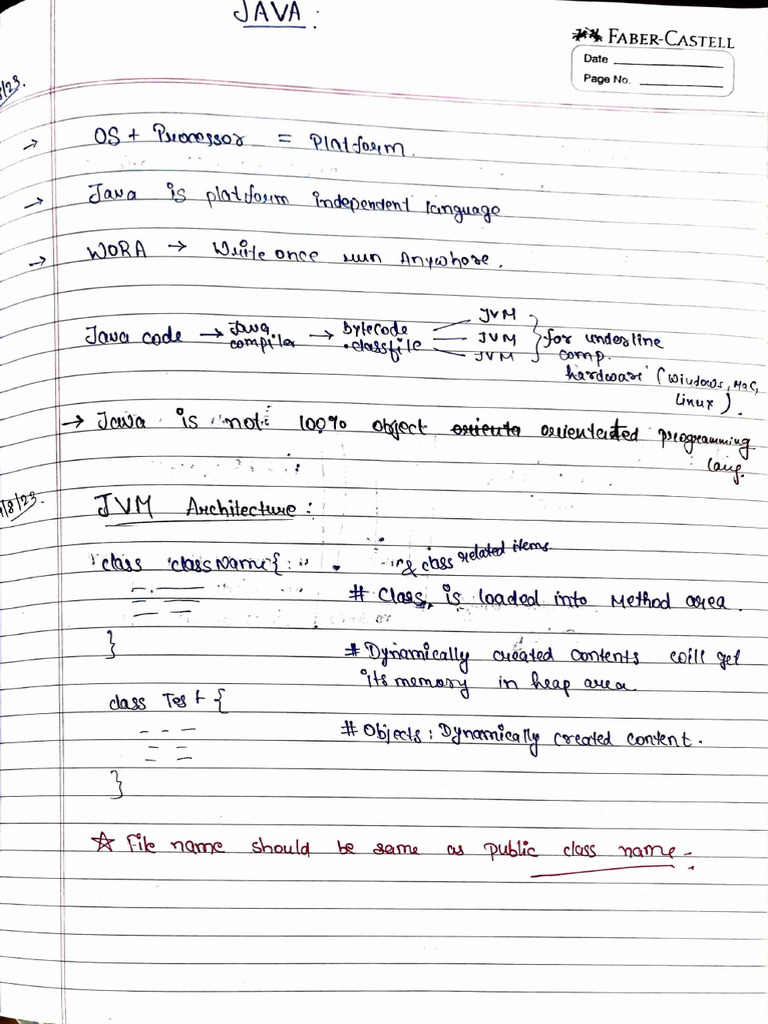 JAVA :
FABER-CASTELL
Date
Page No.
/23.
→ OS + Processor = Platform.
→ Java is platform independent language
→ WORA → Write once run Anywhere.
Java code → Java compiler → bytecode .classfile
JVM
JVM
JVM
} for underline
comp.
hardware (Windows, Mac,
Linux).
→ Java is not 100% object orientated programming
lang.
/8/23.
JVM Architecture :
class classname{
& class related items
# Class, is loaded into Method area.
}
# Dynamically created contents will get
its memory in heap area.
class Test {
# Objects : Dynamically created content.
}
☆ File name should be same as public class name.